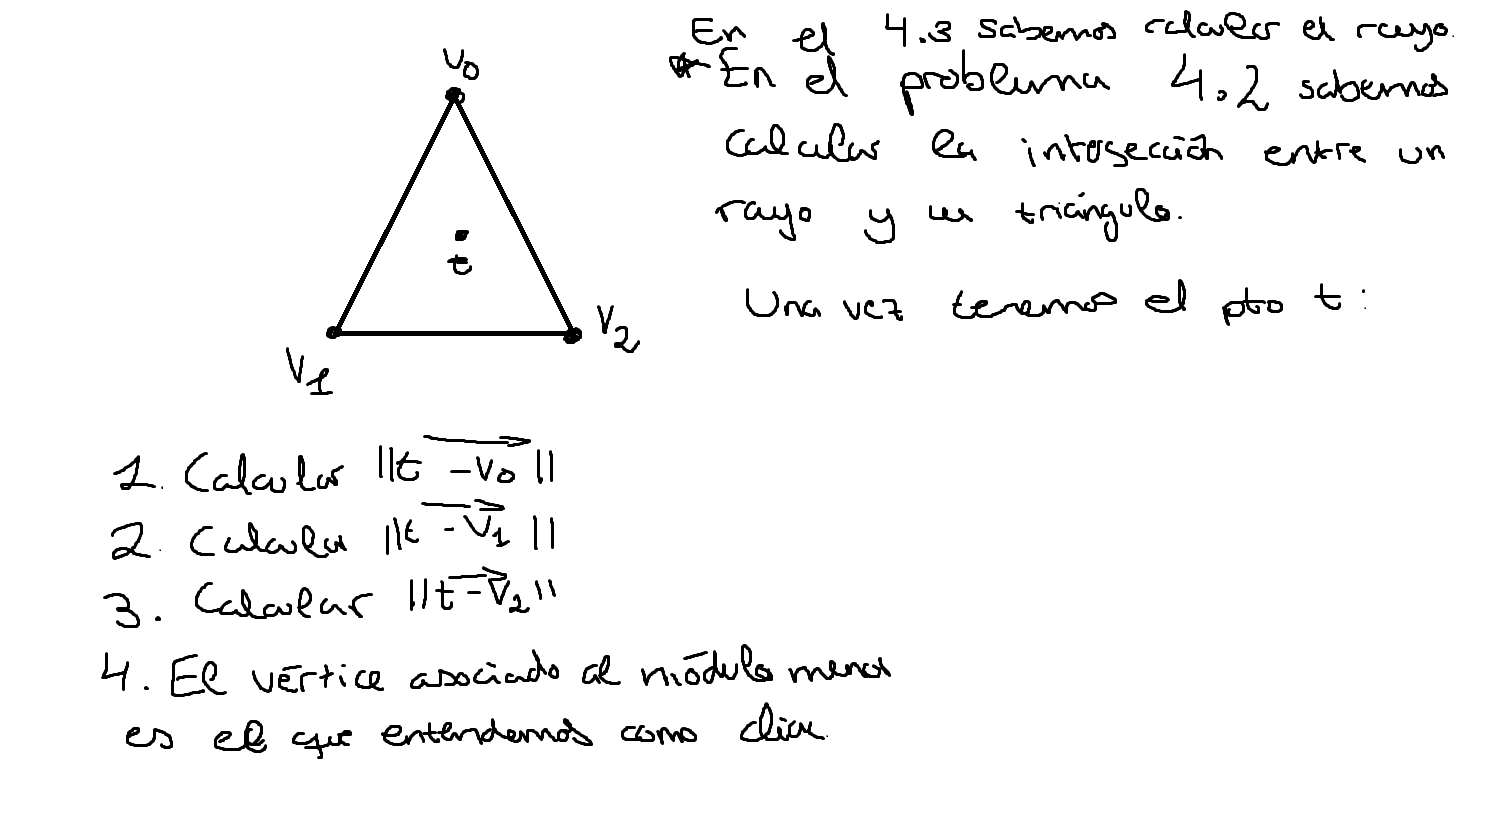 En el 4.3 sabemos calcular el rayo.
* En el problema 4.2 sabemos
calcular la intersección entre un
rayo y un triángulo.
Una vez tenemos el pto t:
V0
t
V1
V2
1. Calcular ||t - V0||
2. Calcular ||t - V1||
3. Calcular ||t - V2||
4. El vértice asociado al módulo menor
es el que entendemos como click